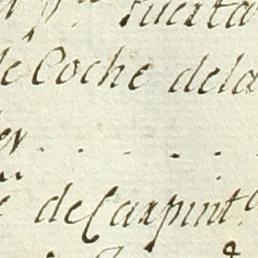 Puerta
de Coche dela
de Carpint.o